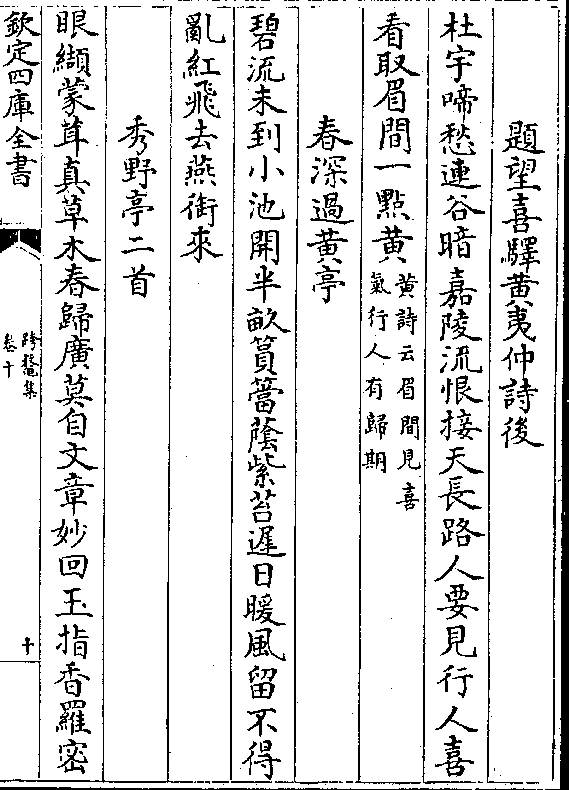 題望喜驛黄夷仲詩後
杜宇啼愁連谷暗嘉陵流恨接天長路人要見行人喜
看取眉間一點黄黄詩云眉間見喜
氣行人有歸期
春深過黄亭
碧流未到小池開半畝篔簹蔭紫苔遲日暖風留不得
亂紅飛去燕銜來
秀野亭二首
眼纈蒙茸真草木春歸廣莫自文章妙回玉指香羅密
欽定四庫全書
跨鼇集
卷十
十